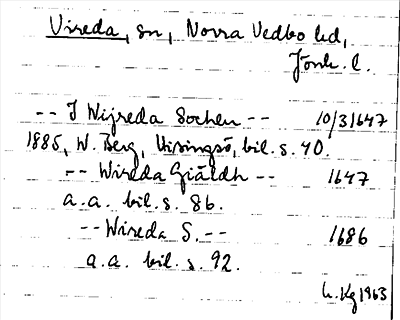 Vireda, sn, Norra Vedbo hd,
Jönk. l.
-- I Wijreda Sochen -- 10/3 1647
1885, W. Berg, Visingsö, bil. s. 40.
-- Wireda Giäldh -- 1647
a.a. bil. s. 86.
-- Wireda S. -- 1686
a.a. bil. s. 92.
1963